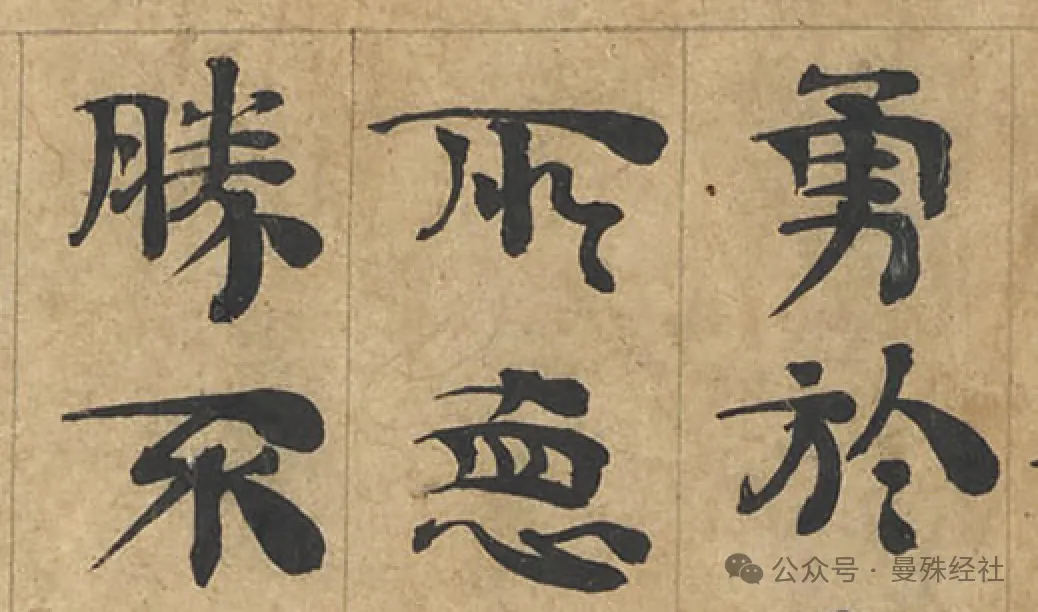 勇於
所惡
勝不
公众号 · 曼殊经社